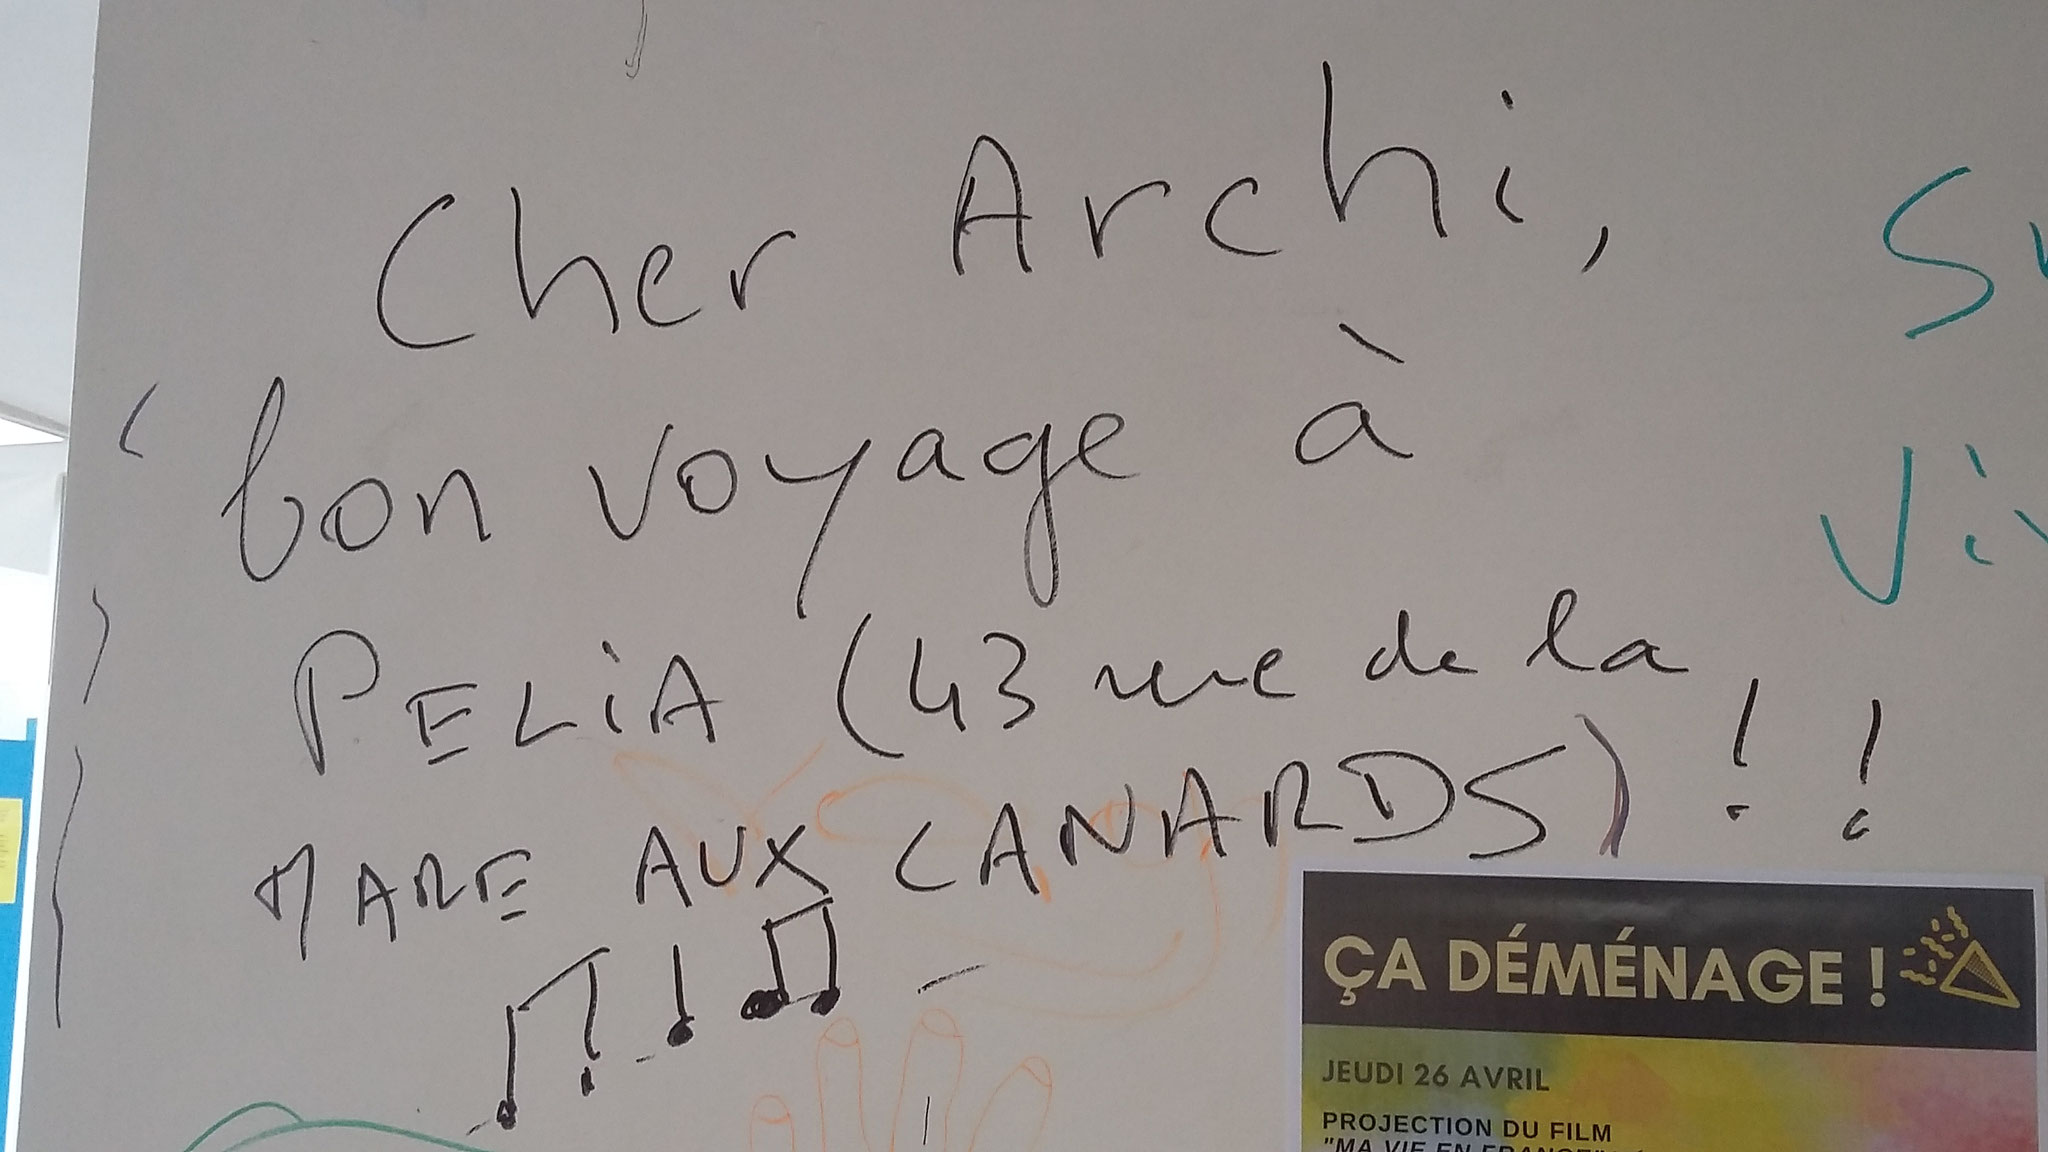 Cher Archi,
bon voyage à
PELiA (43 rue de la
MARE AUX CANARDS) !!
ÇA DÉMÉNAGE !
JEUDI 26 AVRIL
PROJECTION DU FILM
"MA VIE EN FRANCE"